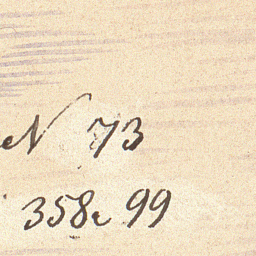 N 73
358 99